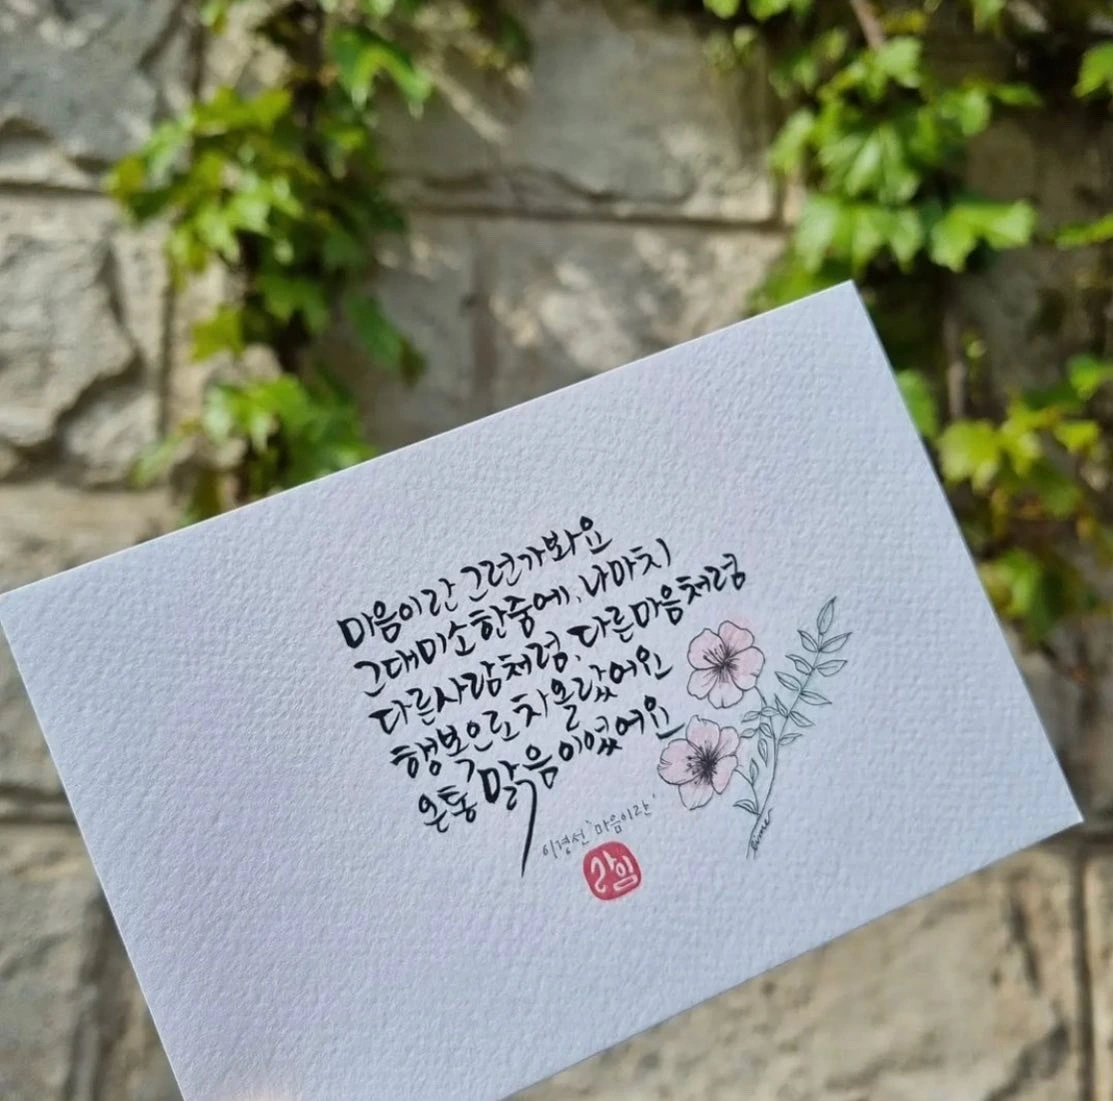 마음이란 그런가봐요
그대 미소 한줌에, 나마치
다른사람처럼, 다른마음처럼
행복으로 차올랐어요
온통 맑음이었어요
이경선 "마음이란"
라임